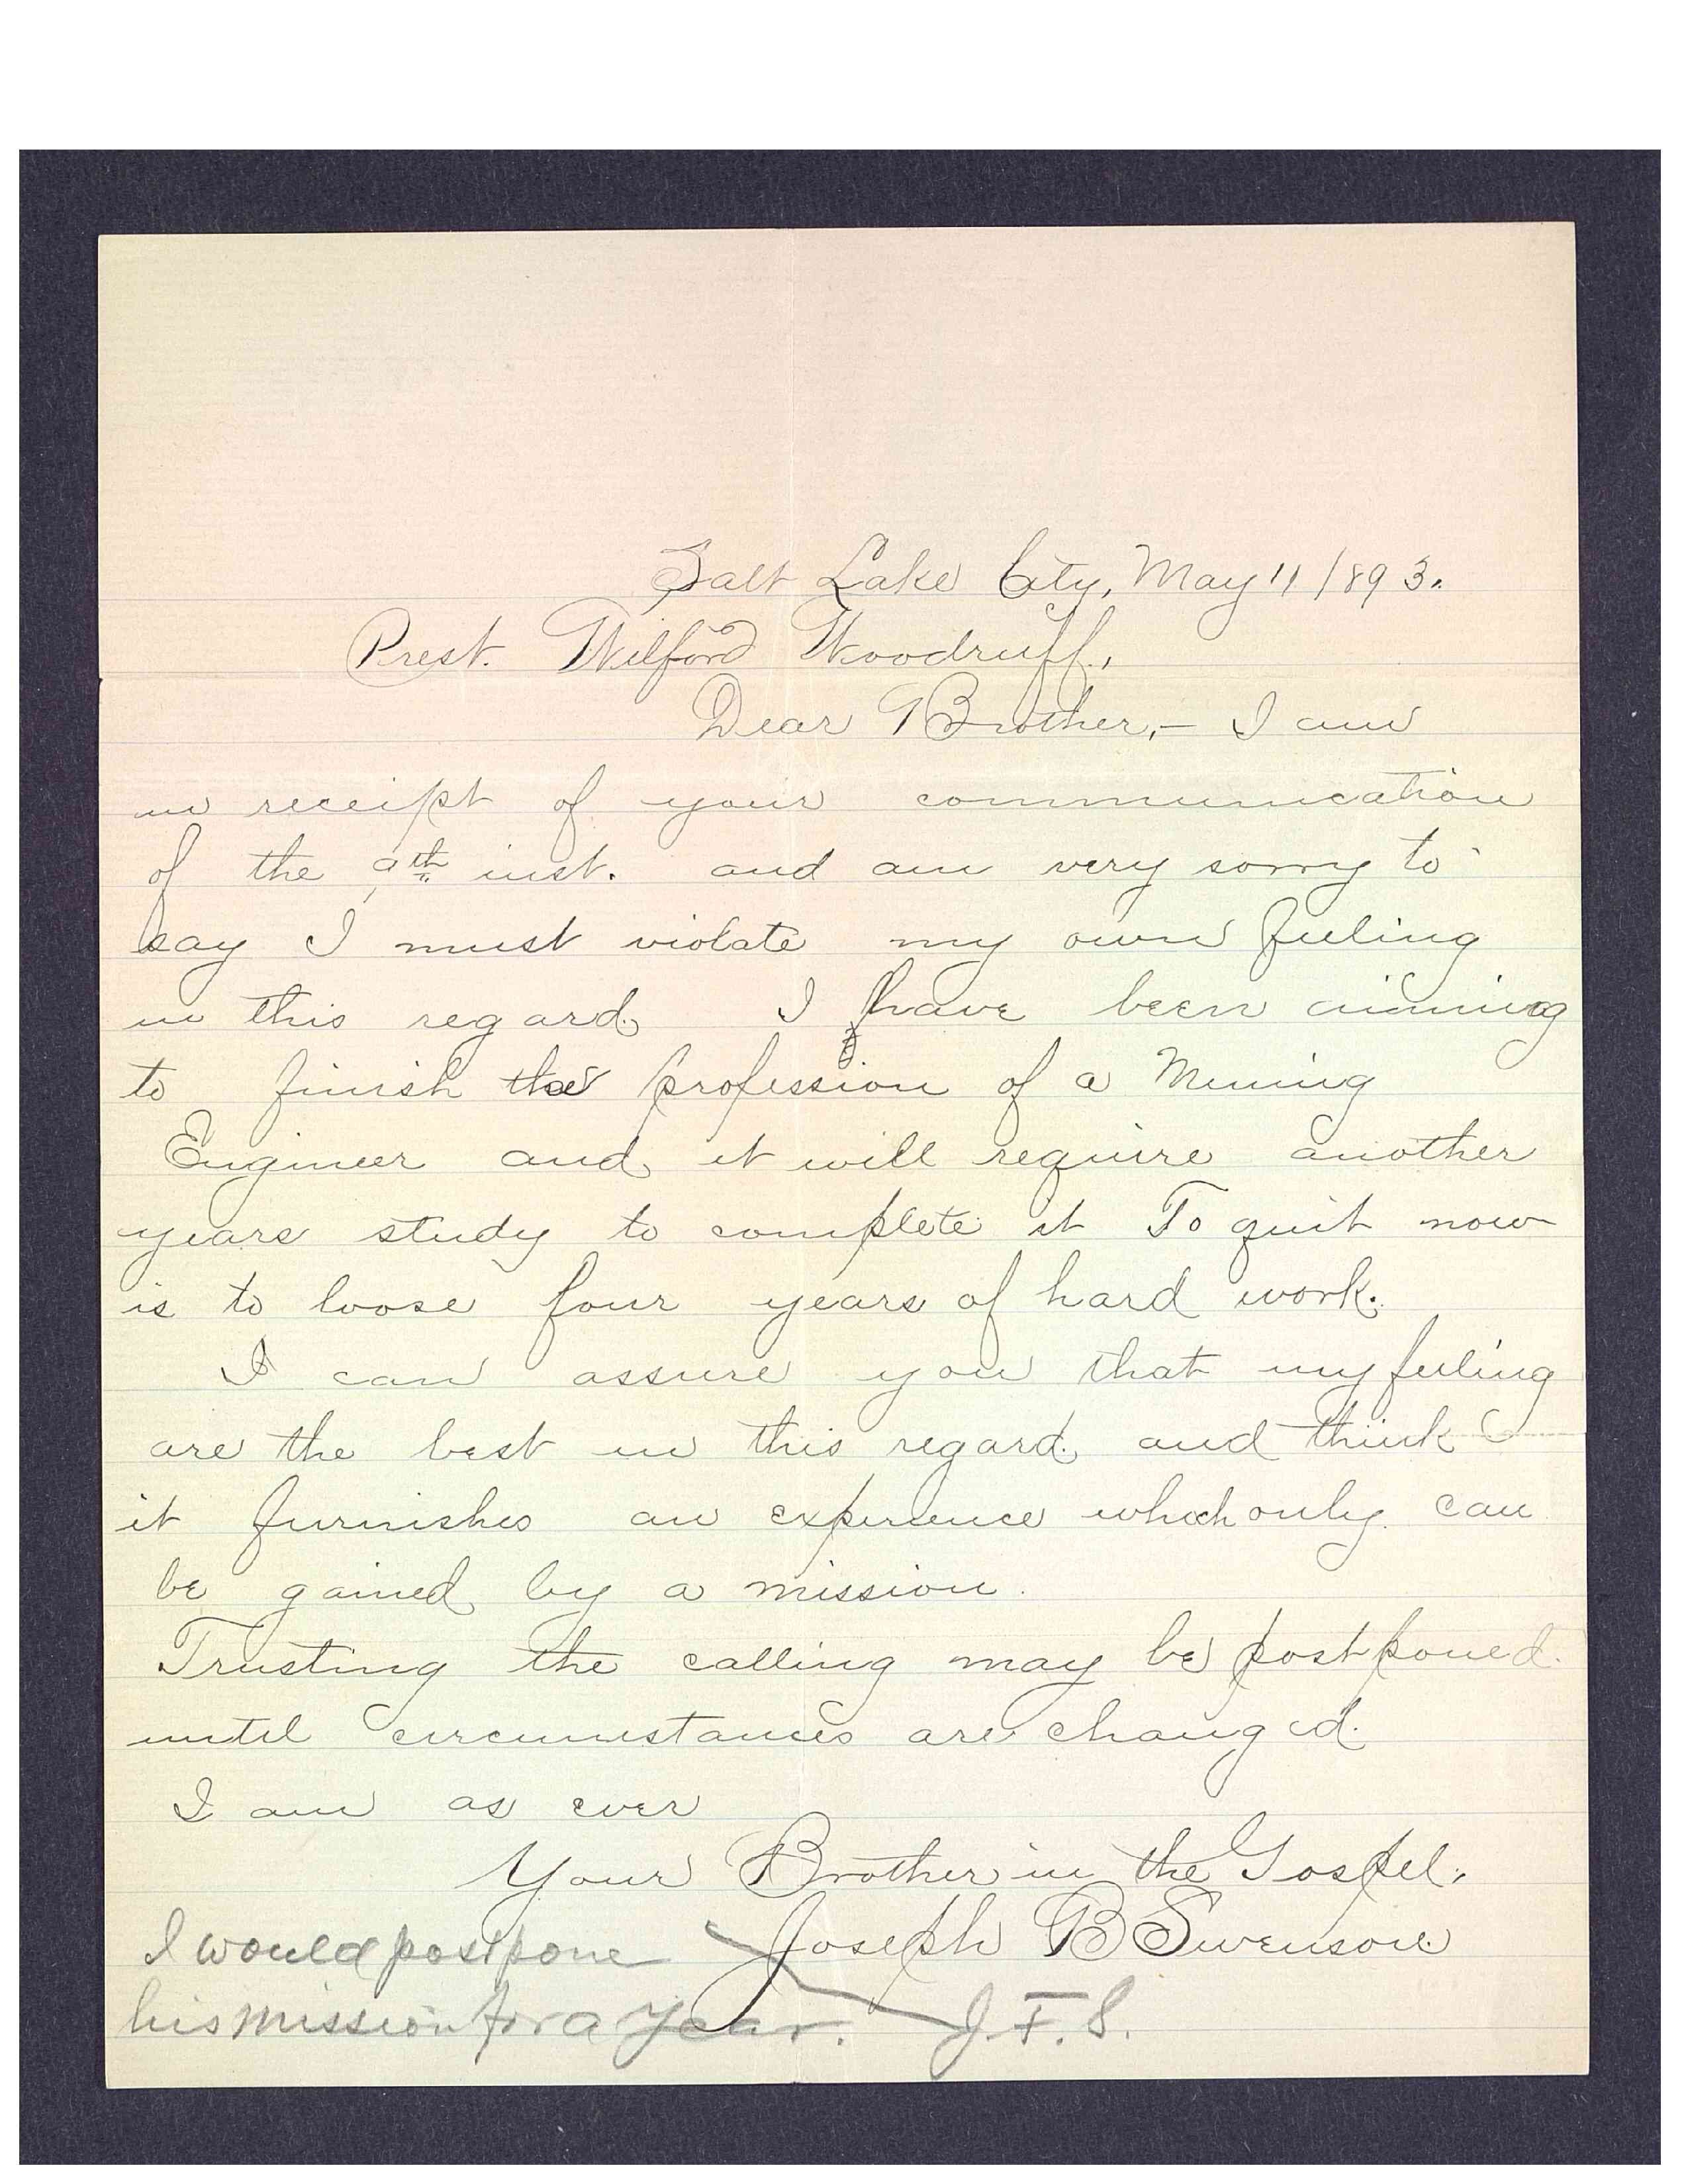 Salt Lake City, May 11 1893.
Prest. Wilford Woodruff,
Dear Brother,- I am
in receipt of your communication
of the 9th inst. and am very sorry to
say I must violate my own feeling
in this regard. I have been aiming
to finish the profession of a Mining
Engineer and it will require another
years study to complete it To quit now
is to loose four years of hard work.
I can assure you that my feeling
are the best in this regard and think
it furnishes an experience which only can
be gained by a mission.
Trusting the calling may be postponed
until circumstances are changed.
I am as ever
Your Brother in the Gospel,
Joseph B Swenson
I would postpone
his mission for a year. J. F. S.